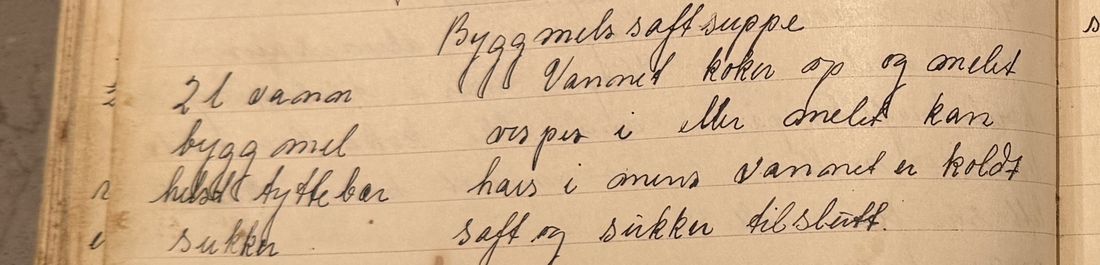 Byggmels saftsuppe
2 l vann
byggmel
helst tyttebær
sukker
Vannet koker op og melet
vispes i eller melet kan
haes i mens vannet er koldt
saft og sukker tilslutt.